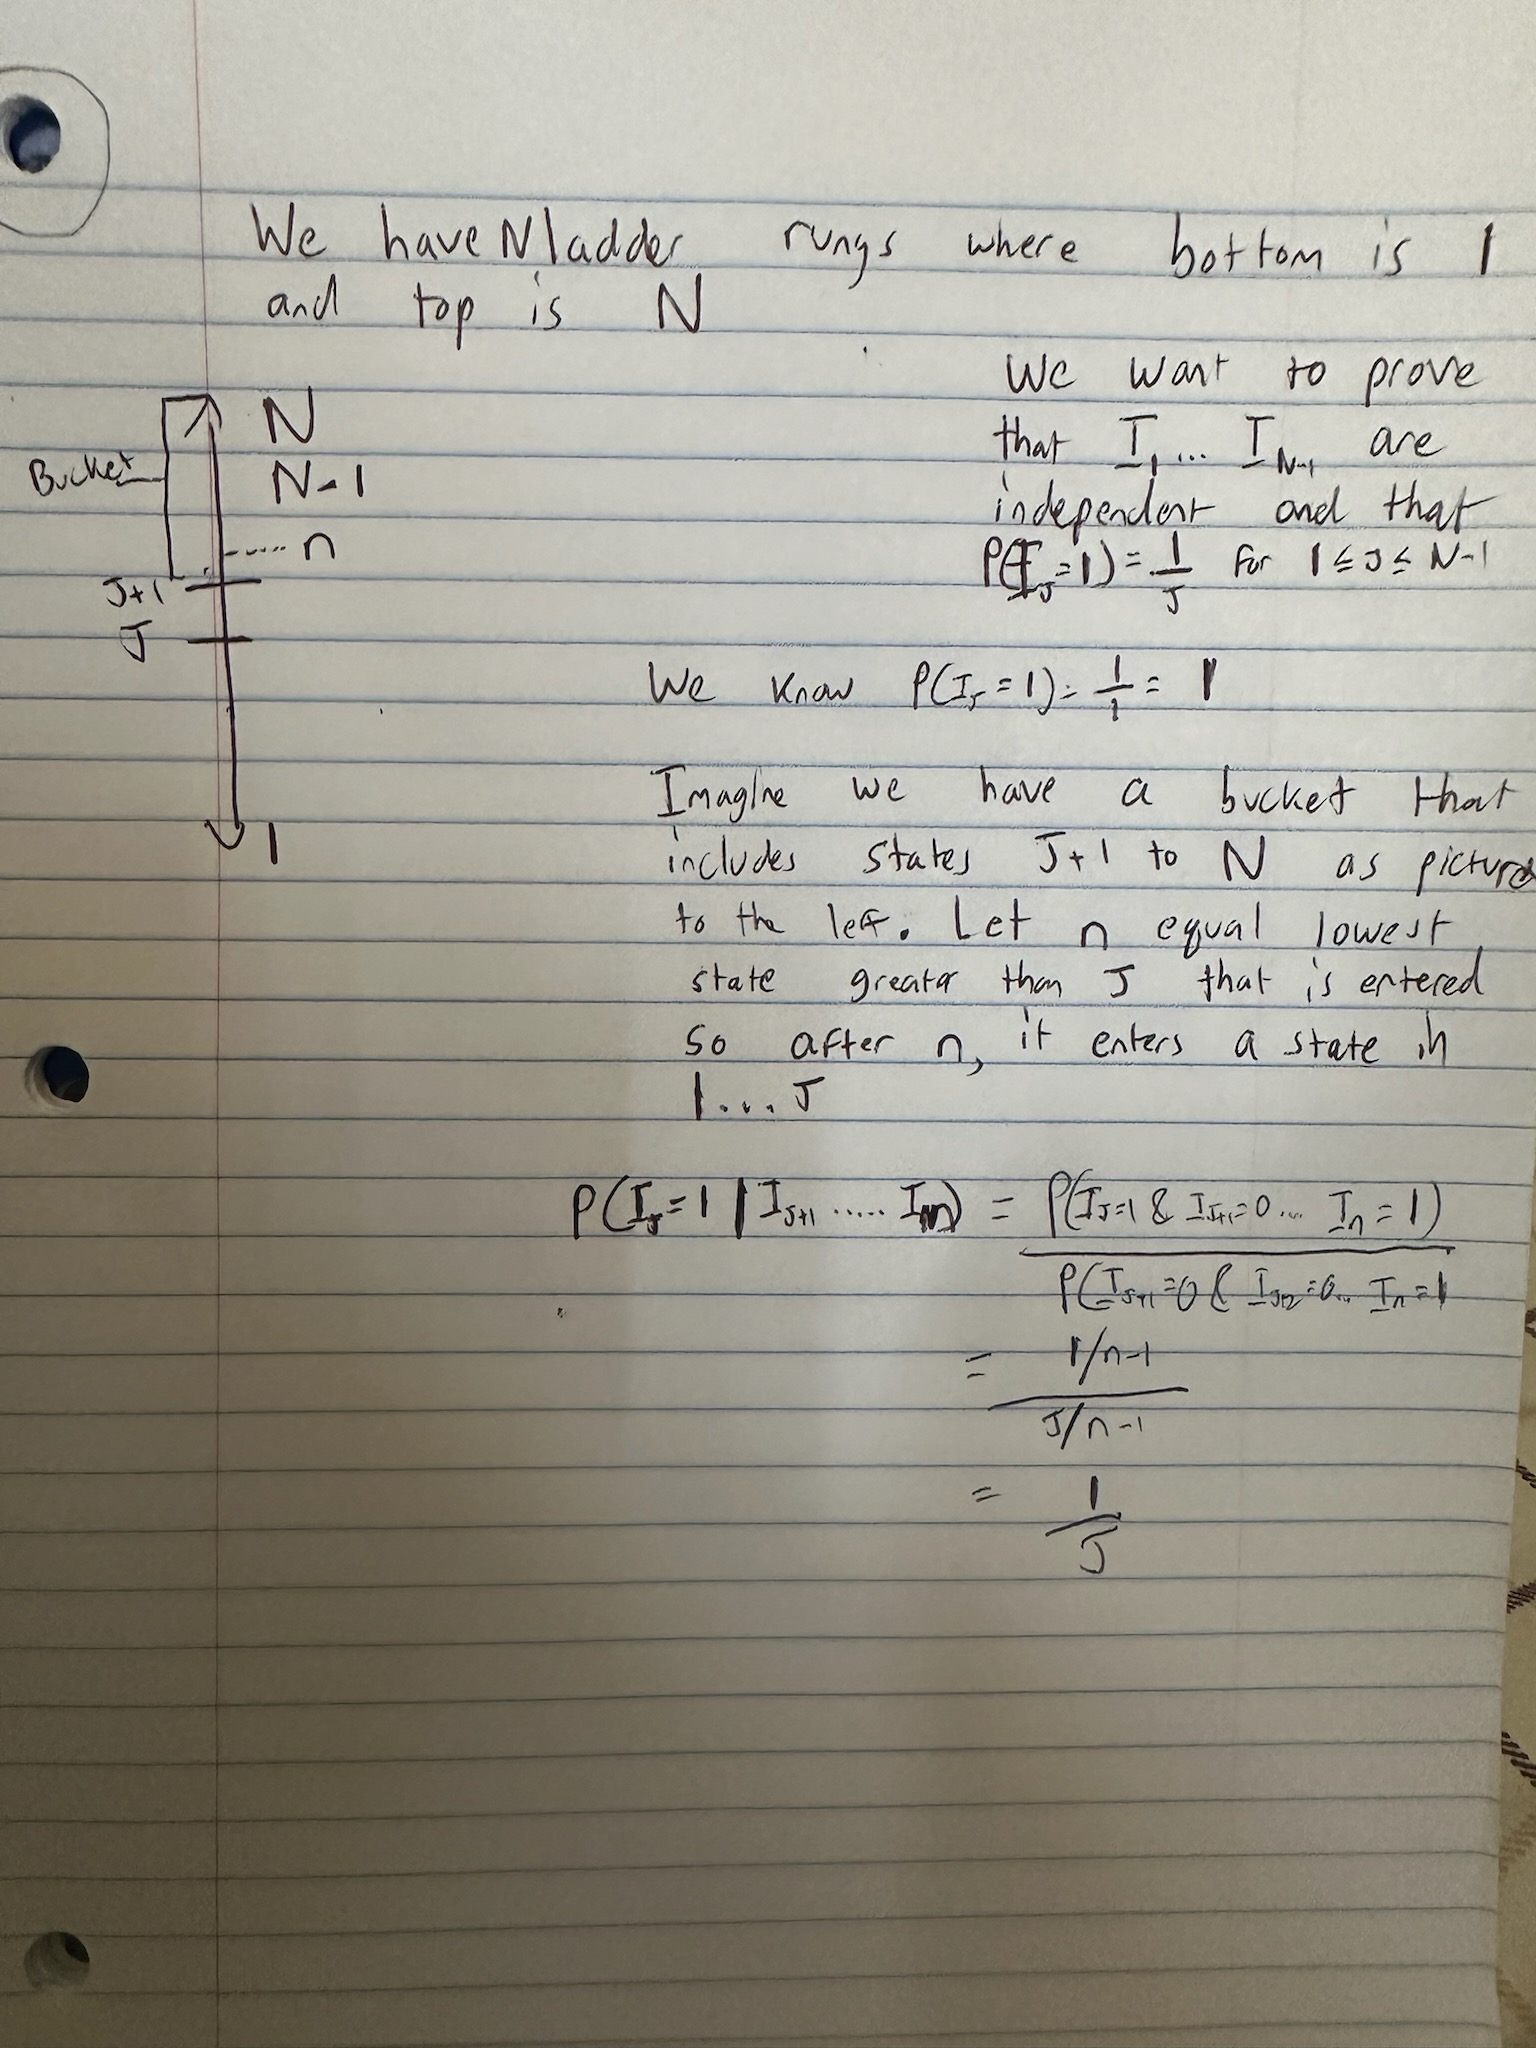 We have N ladder rungs where bottom is 1
and top is N
We want to prove
that I₁... I_N-1 are
independent and that
P(I_J=1) = 1/J for 1 ≤ J ≤ N-1
N
N-1
Bucket
.... n
J+1
J
1
We know P(I_J = 1) = 1/1 = 1
Imagine we have a bucket that
includes states J+1 to N as picture
to the left. Let n equal lowest
state greater than J that is entered
so after n, it enters a state in
1...J
P(I_J=1 | I_J+1 ..... I_n) = P(I_J=1 & I_J+1=0... I_n = 1)
P(I_J+1=0 & I_J+2=0... I_n=1
= 1/n-1
J/n-1
= 1/J